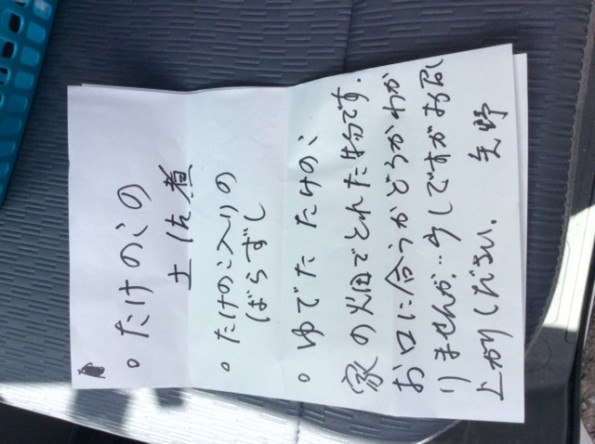 。たけのこの
土佐煮
。たけのこ入りの
ばらずし
。ゆでた たけのこ
家の畑でとれた物です.
お口に合うかどうかわか
りませんが‥少しですがお召し
上がりください. 矢野